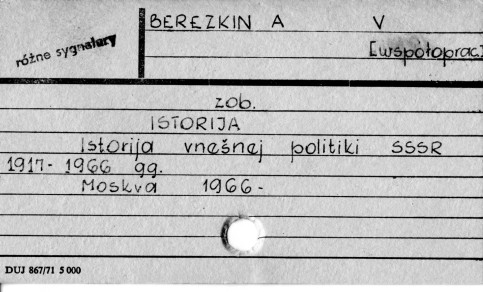 BEREZKIN A V
różne sygnatury
[współoprac]
zob.
ISTORIJA
Istorija vnešnej politiki SSSR
1917-1966 gg.
Moskva 1966-
DUJ 867/71 5 000